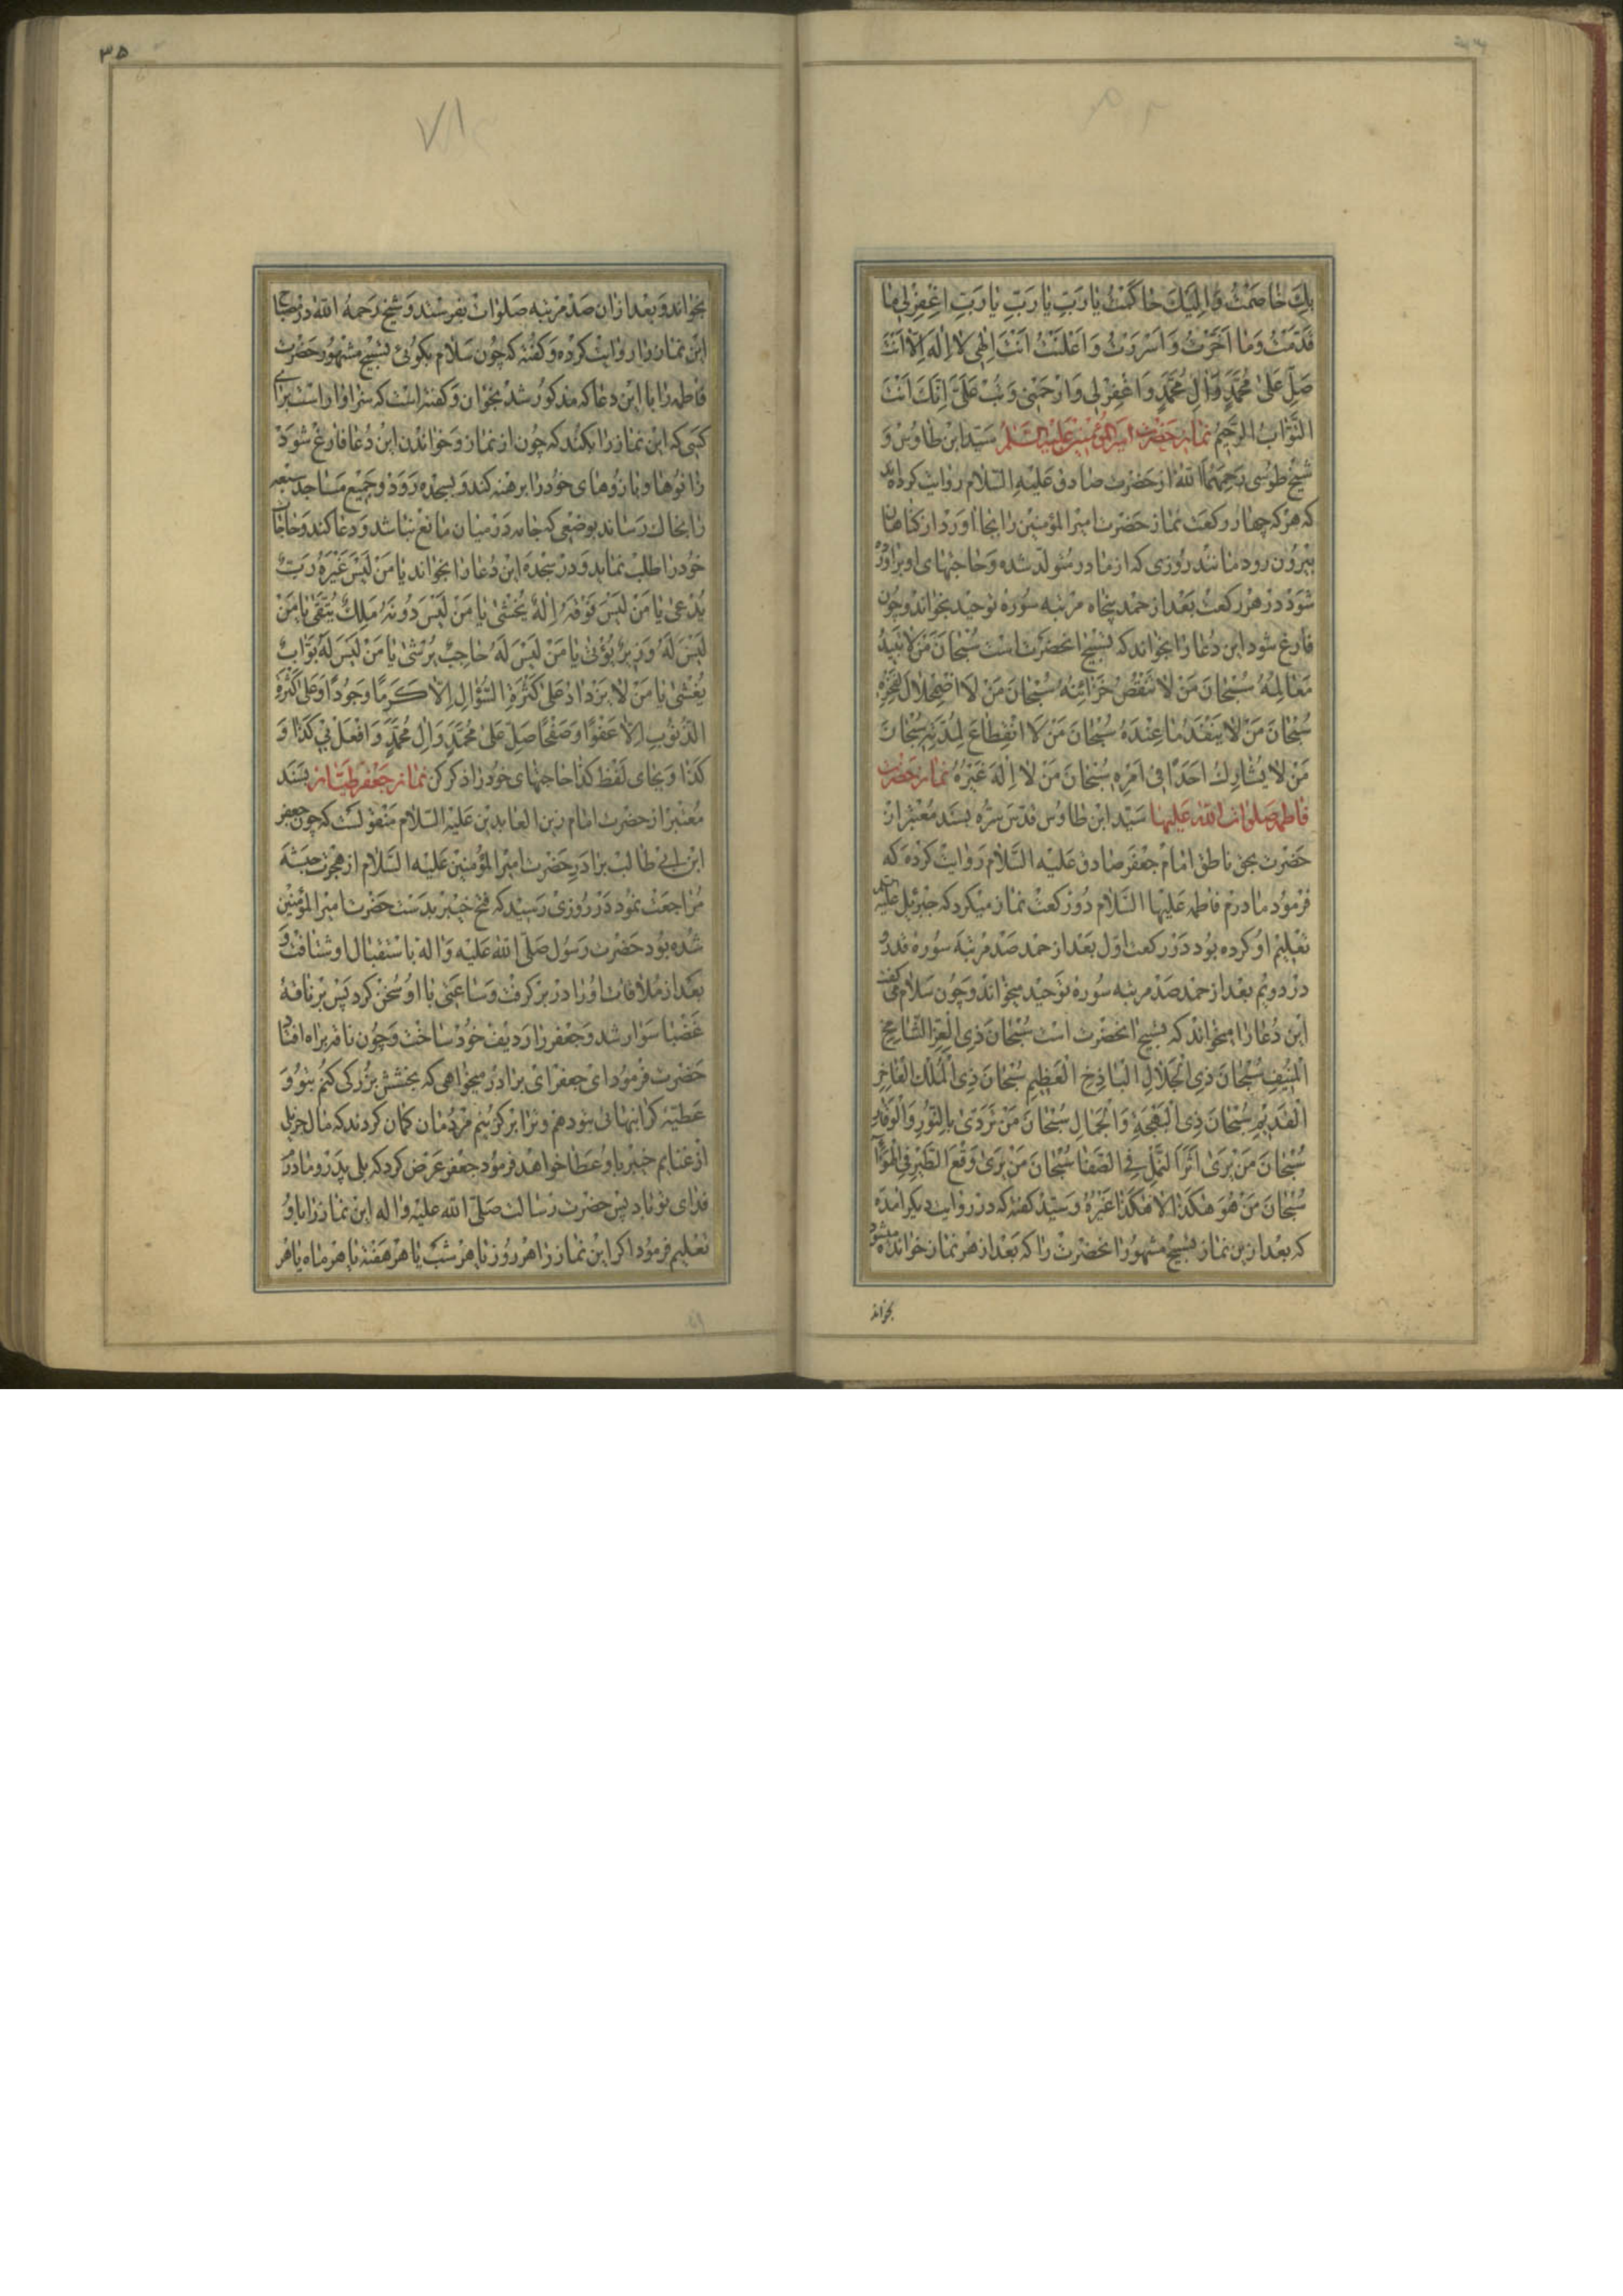 بِكَ خٰاصَمْتُ وَاِلَيْكَ حٰاكَمْتُ يٰا رَبِّ يٰا رَبِّ يٰا رَبِّ اِغْفِرْلي مٰا
قَدَّمْتُ وَمٰا اَخَّرْتُ وَاَسْرَرْتُ وَاَعْلَنْتُ اَنْتَ اِلٰهي لاٰ اِلٰهَ اِلاّٰ اَنْتَ
صَلِّ عَلىٰ مُحَمَّدٍ وَاٰلِ مُحَمَّدٍ وَاغْفِرْلي وَارْحَمْني وَتُبْ عَلَيَّ اِنَّكَ اَنْتَ
التَّوّٰابُ الرَّحيمُ نماز حضرت امير المؤمنين عليه السلم سيّد ابن طاوس و
شيخ طوسى رحمهما الله از حضرت صادق عليه السّلام روايت كرده‌اند
كه هركه چهار ركعت نماز حضرت امير المؤمنين را بجا اورد از كناهان
بيرون رود مانند روزى كه از مادر متولّد شده و حاجتهاى او براورده
شود در هر ركعت بعد از حمد پنجاه مرتبه سوره توحيد بخواند و چون
فارغ شود اين دعا را بخواند كه تسبيح انحضرت است سُبْحٰانَ مَنْ لاٰ تَبيدُ
مَعٰالِمُهُ سُبْحٰانَ مَنْ لاٰ تَنْقُصُ خَزٰائِنُهُ سُبْحٰانَ مَنْ لاَ اضْمِحْلاٰلَ لِفَخْرِهِ
سُبْحٰانَ مَنْ لاٰ يَنْفَدُ مٰا عِنْدَهُ سُبْحٰانَ مَنْ لاَ انْقِطٰاعَ لِمُدَّتِهِ سُبْحٰانَ
مَنْ لاٰ يُشٰارِكُ اَحَدًا في اَمْرِهِ سُبْحٰانَ مَنْ لاٰ اِلٰهَ غَيْرُهُ نماز حضرت
فاطمه صلوات الله عليها سيّد ابن طاوس قدّس سرّه بسند معتبر از
حضرت بحق ناطق امام جعفر صادق عليه السّلام روايت كرده كه
فرمود مادرم فاطمه عليها السّلام دو ركعت نماز ميكرد كه جبرئيل عليه
تعليم او كرده بود در ركعت اول بعد از حمد صد مرتبه سوره قدر و
در دويم بعد از حمد صد مرتبه سوره توحيد ميخواند و چون سلام مى كفت
اين دعا را ميخواند كه تسبيح انحضرت است سُبْحٰانَ ذِي الْعِزِّ الشّٰامِخِ
الْمُنيفِ سُبْحٰانَ ذِي الْجَلاٰلِ الْبٰاذِخِ الْعَظيمِ سُبْحٰانَ ذِي الْمُلْكِ الْفٰاخِرِ
الْقَديمِ سُبْحٰانَ ذِي الْبَهْجَةِ وَالْجَمٰالِ سُبْحٰانَ مَنْ تَرَدّىٰ بِالنُّورِ وَالْوَقٰارِ
سُبْحٰانَ مَنْ يَرىٰ اَثَرَ النَّمْلِ فِي الصَّفٰا سُبْحٰانَ مَنْ يَرىٰ وَقْعَ الطَّيْرِ فِي الْهَوٰاءِ
سُبْحٰانَ مَنْ هُوَ هٰكَذٰا لاٰ هٰكَذٰا غَيْرُهُ و سيّد كفته كه در روايت ديكر امده
كه بعد ازين نماز تسبيح مشهور انحضرت را كه بعد از هر نماز خوانده ميشود
بخواند
۳۵
بخواند و بعد از ان صد مرتبه صلوات بفرستد و شيخ رحمه الله در مصباح
اين نماز را روايت كرده و كفته كه چون سلام بكوئى تسبيح مشهور حضرت
فاطمه را با اين دعا كه مذكور شد بخوان و كفته است كه سزاوار است براى
كسى كه اين نماز را بكند كه چون از نماز و خواندن اين دعا فارغ شود
زانوها و بازوهاى خود را برهنه كند و بسجده رود و جميع مساجد سبعه
را بخاك رساند بوضعى كه جامه در ميان مانع نباشد و دعا كند و حاجات
خود را طلب نمايد و در سجده اين دعا را بخواند يٰا مَنْ لَيْسَ غَيْرَهُ رَبٌّ
يُدْعىٰ يٰا مَنْ لَيْسَ فَوْقَهُ اِلٰهٌ يُخْشىٰ يٰا مَنْ لَيْسَ دُونَهُ مَلِكٌ يُتَّقىٰ يٰا مَنْ
لَيْسَ لَهُ وَزيرٌ يُؤْتىٰ يٰا مَنْ لَيْسَ لَهُ حٰاجِبٌ يُرْشىٰ يٰا مَنْ لَيْسَ لَهُ بَوّٰابٌ
يُغْشىٰ يٰا مَنْ لاٰ يَزْدٰادُ عَلىٰ كَثْرَةِ السُّؤٰالِ اِلاّٰ كَرَمًا وَجُودًا وَعَلىٰ كَثْرَةِ
الذُّنُوبِ اِلاّٰ عَفْوًا وَصَفْحًا صَلِّ عَلىٰ مُحَمَّدٍ وَاٰلِ مُحَمَّدٍ وَافْعَلْ بي كَذٰا وَ
كَذٰا و بجاى لفظ كذا حاجتهاى خود را ذكر كن نماز جعفر طيّار بسند
معتبر از حضرت امام زين العابدين عليه السّلام منقولست كه چون جعفر
ابن ابى طالب برادر حضرت امير المؤمنين عليه السّلام از هجرت حبشه
مراجعت نمود در روزى رسيد كه فتح خيبر بدست حضرت امير المؤمنين
شده بود حضرت رسول صلّى الله عليه واله باستقبال او شتافت و
بعد از ملاقات او را در بر كرفت و ساعتى با او سخن كرد پس بر ناقهٔ
غضبا سوار شد و جعفر را رديف خود ساخت و چون ناقه براه افتاد
حضرت فرمود اى جعفر اى برادر ميخواهى كه بخشش بزركى كنم بتو و
عطيّهٔ كرانبهائى بتو دهم و ترا بركزينم مردمان كمان كردند كه مال جزيل
از غنايم خيبر باو عطا خواهد فرمود جعفر عرض كرد كه بلى پدر و مادرم
فداى تو باد پس حضرت رسالت صلّى الله عليه واله اين نماز را باو
تعليم فرمود اكر اين نماز را هر روز يا هر شب يا هر هفته يا هر ماه يا هر